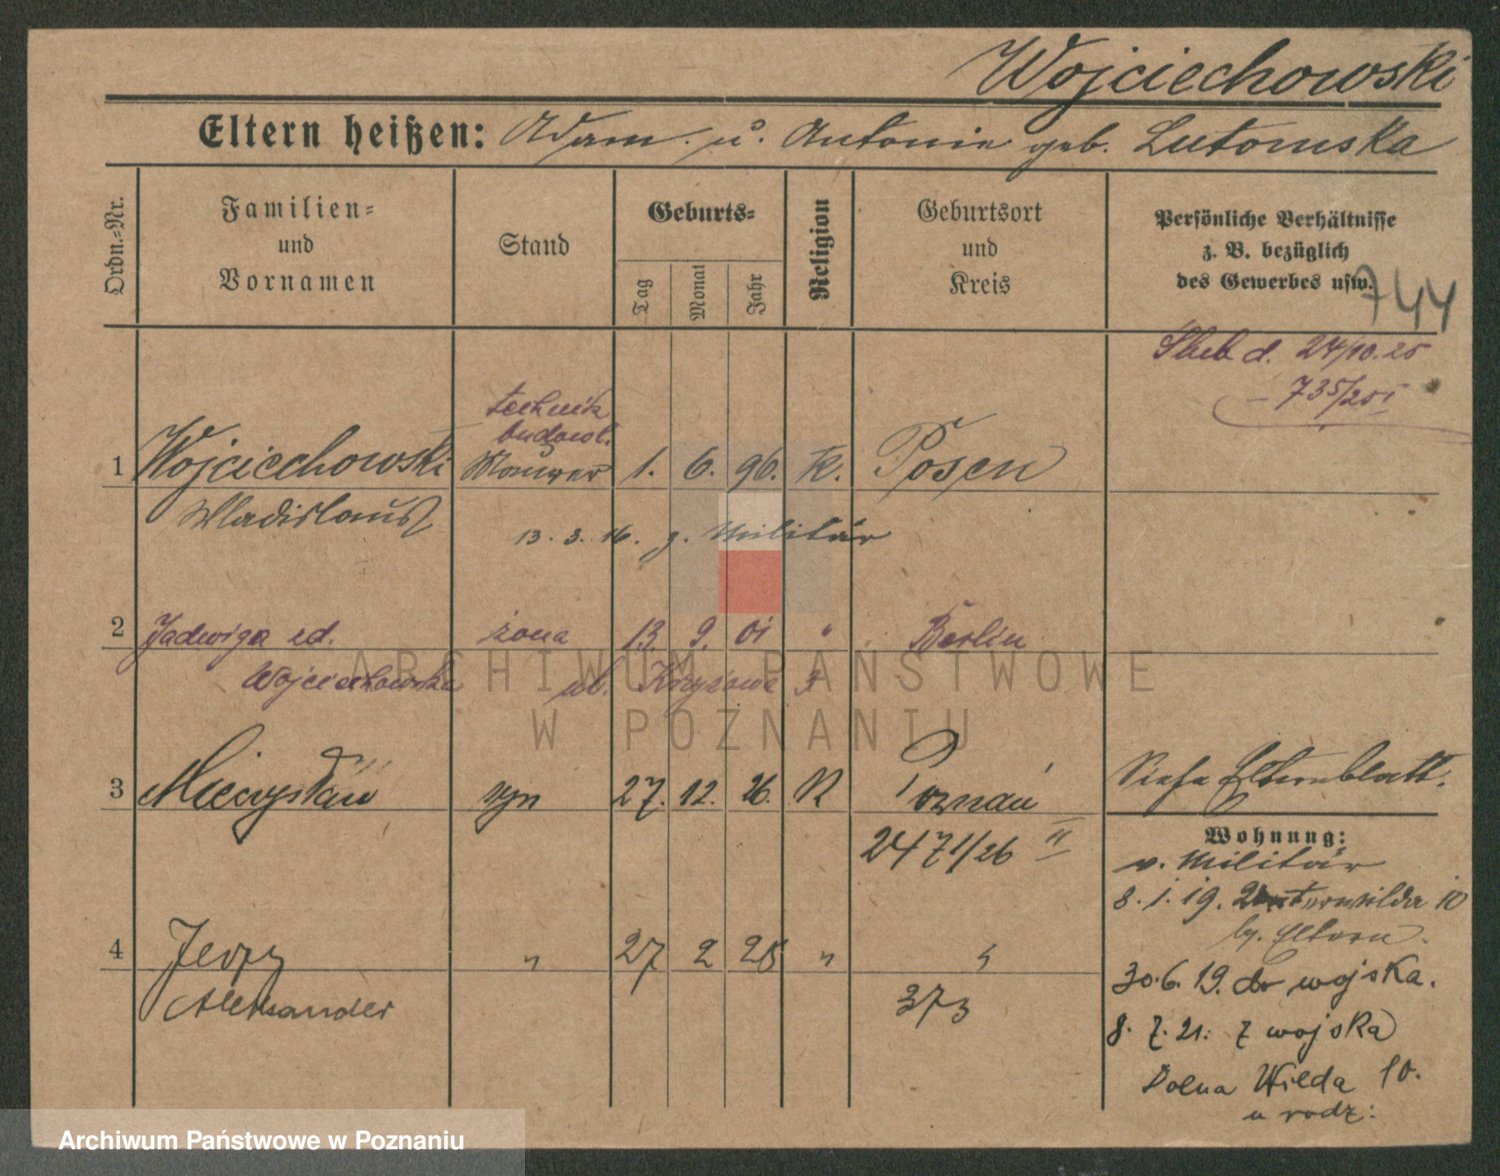 Wojciechowski
Eltern heißen: Adam u. Antonie geb. Lutomska
Ordn.=Nr.
Familien=
und
Vornamen
Stand
Geburts=
Tag
Monat
Jahr
Religion
Geburtsort
und
Kreis
Persönliche Verhältnisse
z. B. bezüglich
des Gewerbes usw.
744
Ślub d. 24/10.25
735/25
technik
budowl.
1 Wojciechowski Maurer 1. 6. 96. K. Posen
Wladislaus
13. 3. 16. z. Militär
2 Jadwiga zd. żona 13. 9. 01 " Berlin
Wojciechowska ul. Krzyżowa
3 Mieczysław syn 27. 12. 26. K Poznań
Siehe Elternblatt.
2471/26 II
Wohnung:
v. Militär
8. 1. 19. Unterwilda 10
b. Eltern.
4 Jerzy " 27 2 28 " "
Aleksander
373
30. 6. 19. do wojska.
8. 7. 21. z wojska
Dolna Wilda 10.
u rodz.
ARCHIWUM PAŃSTWOWE
W POZNANIU
Archiwum Państwowe w Poznaniu